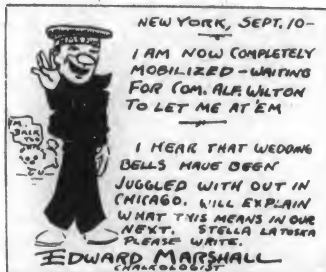 NEW YORK, SEPT. 10-
I AM NOW COMPLETELY
MOBILIZED - WAITING
FOR COM. ALF. WILTON
TO LET ME AT 'EM
I'M
BACK
TOO
I HEAR THAT WEDDING
BELLS HAVE BEEN
JUGGLED WITH OUT IN
CHICAGO. WILL EXPLAIN
WHAT THIS MEANS IN OUR
NEXT. STELLA LATOSKA
PLEASE WRITE.
EDWARD MARSHALL
CHALKOLOGIST